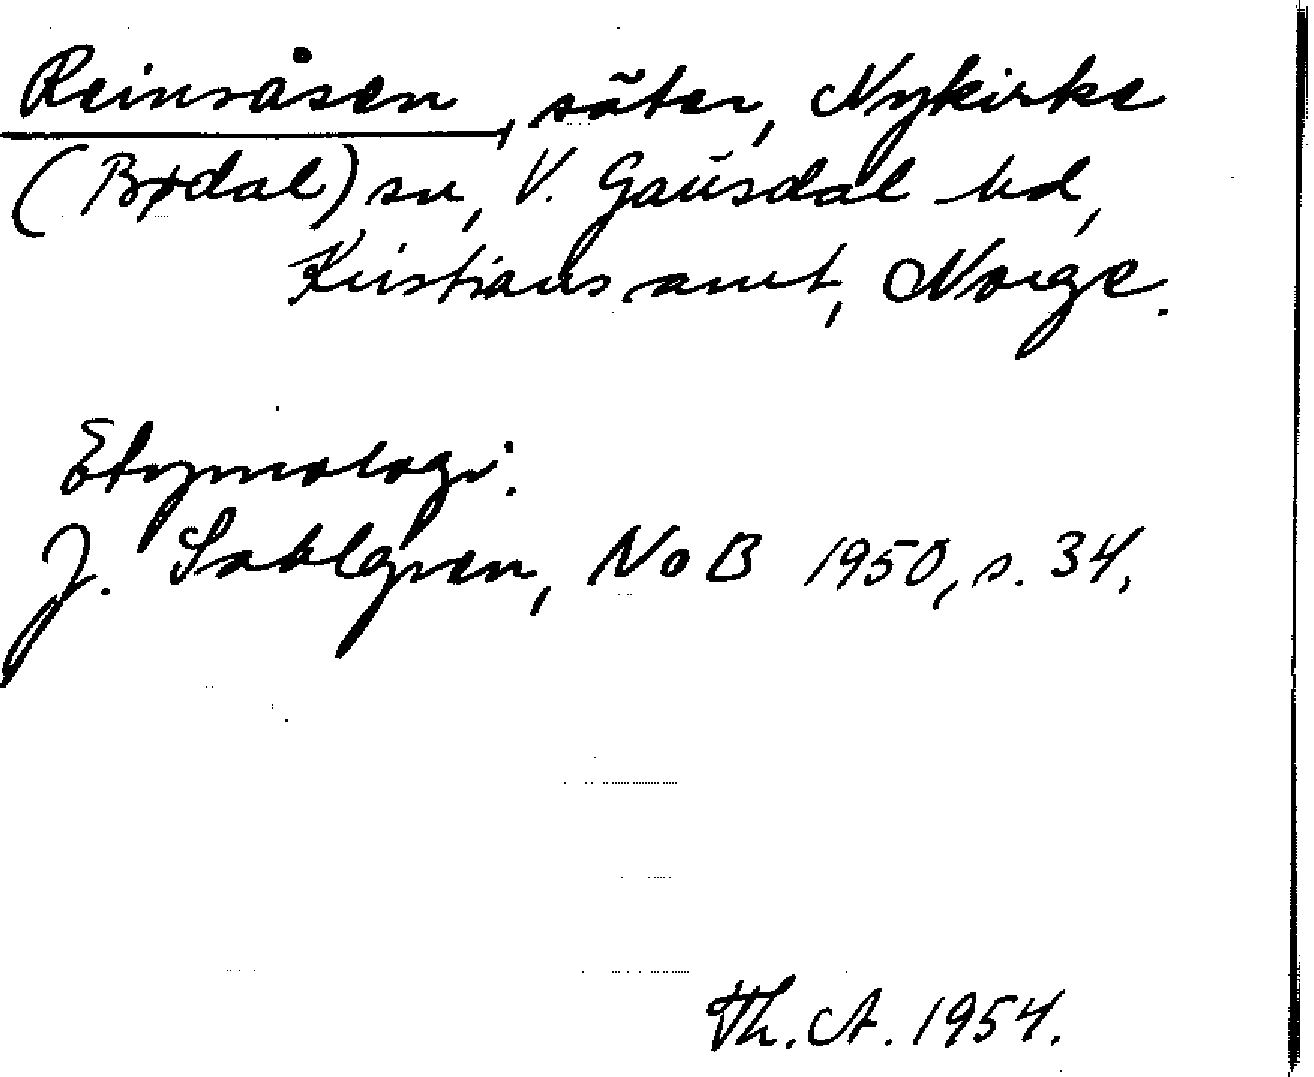 Reinsåsen, säter, Nykirke
(Bødal) sn, V. Gausdal hd,
Kristians amt, Norge.
Etymologi:
J. Sahlgren, NoB 1950, s. 34.
Th. A. 1954.